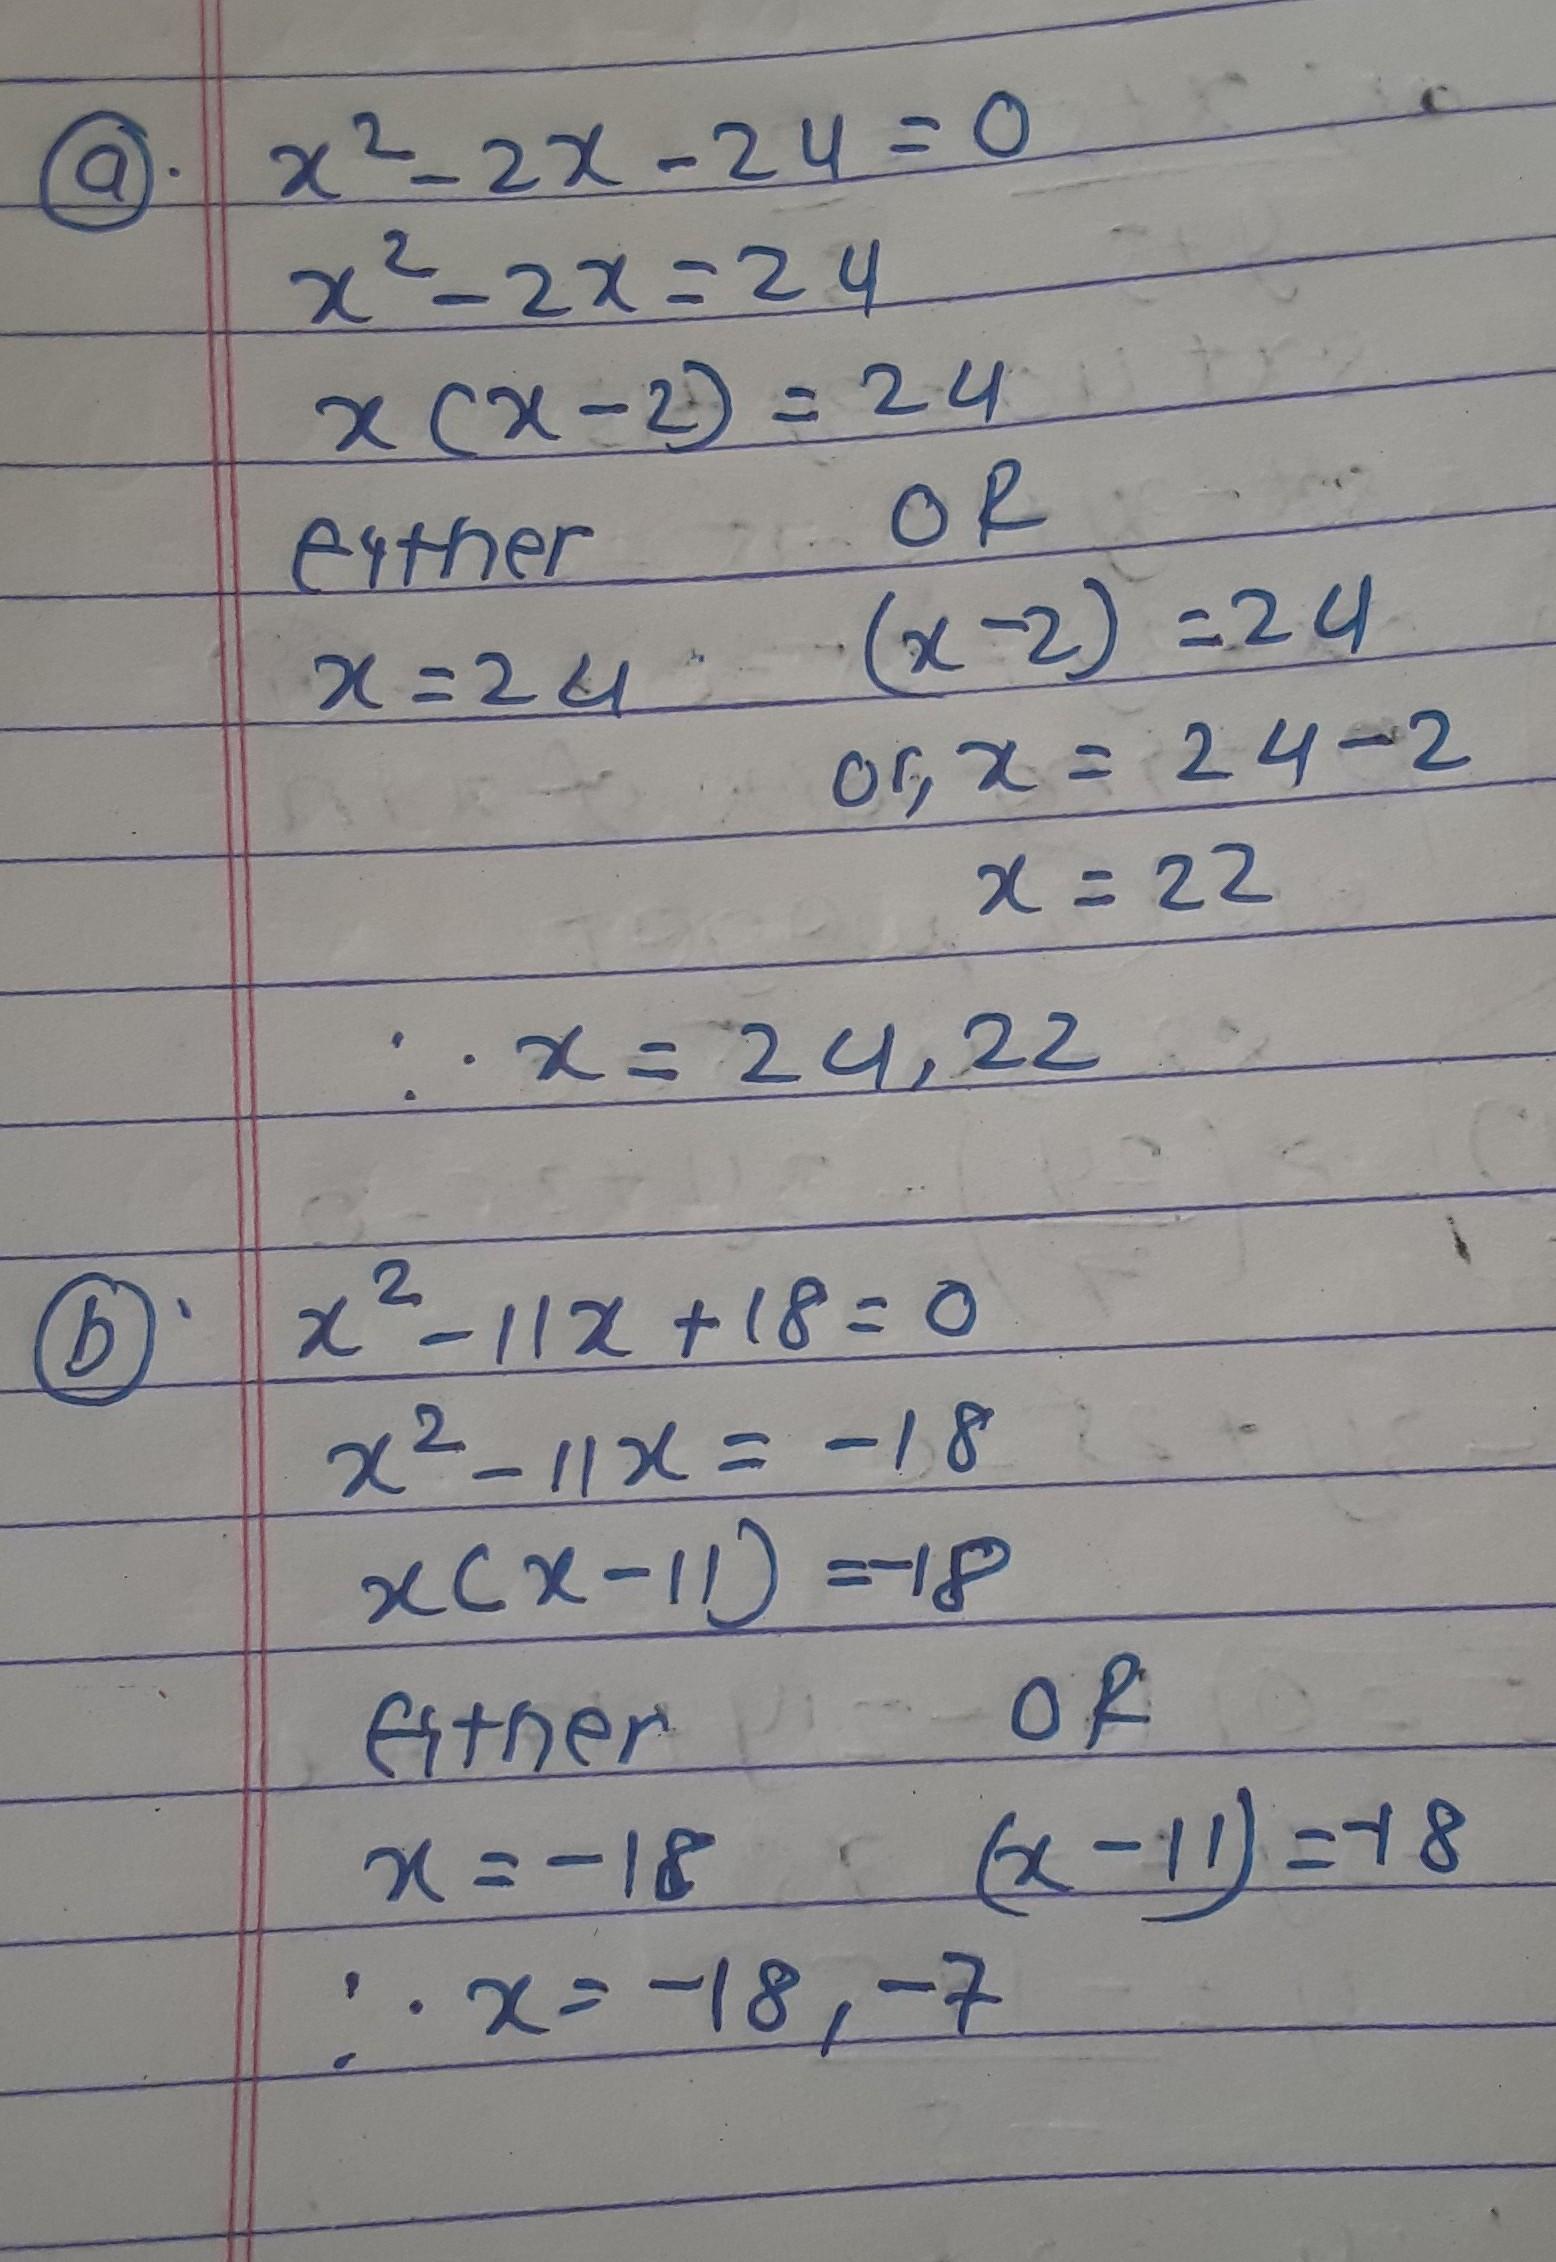 (a). x² - 2x - 24 = 0
x² - 2x = 24
x (x - 2) = 24
either OR
x = 24 (x - 2) = 24
or, x = 24 - 2
x = 22
∴ x = 24, 22
(b). x² - 11x + 18 = 0
x² - 11x = -18
x(x - 11) = -18
Either OR
x = -18 (x - 11) = -18
∴ x = -18, -7